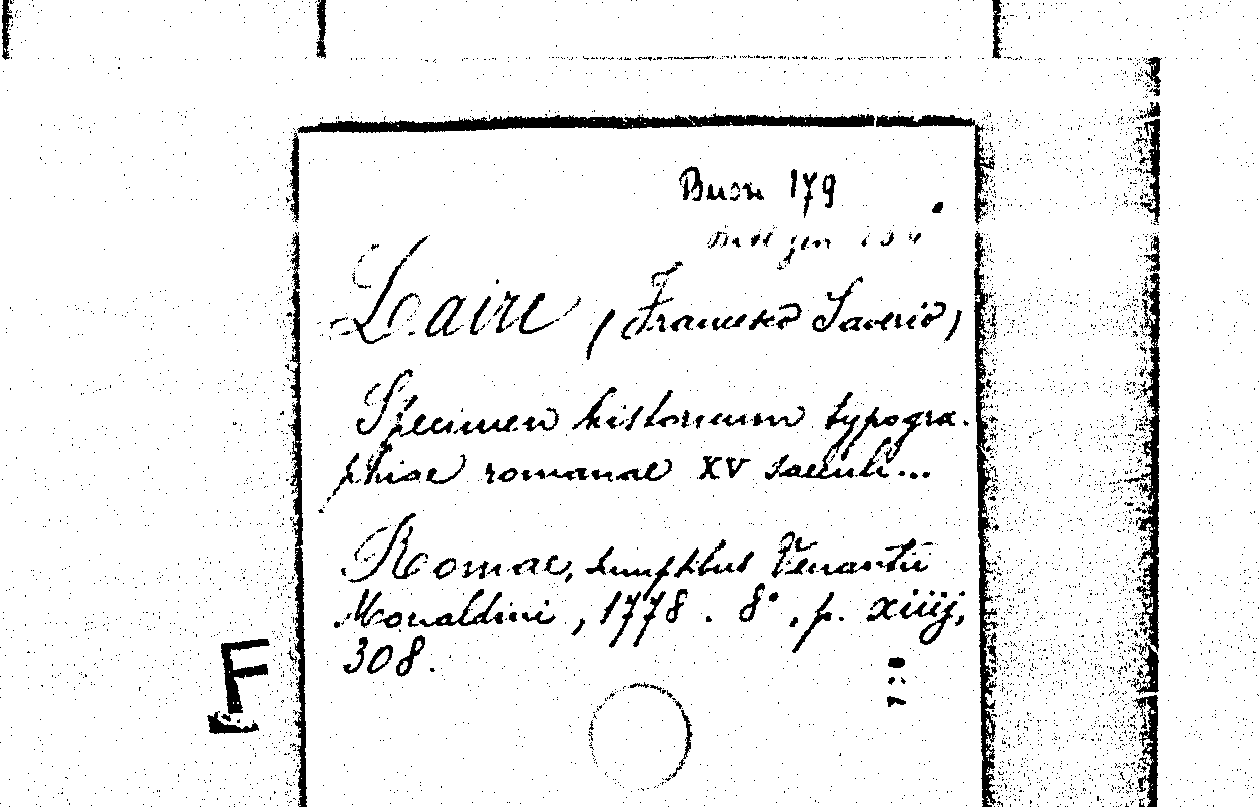 Buon 179
Laire (Francesco Saverio)
Specimen historicum typogra-
phiae romanae XV saeculi...
Romae, sumptibus Venantii
Monaldini, 1778. 8°, p. xiiij,
308.
F